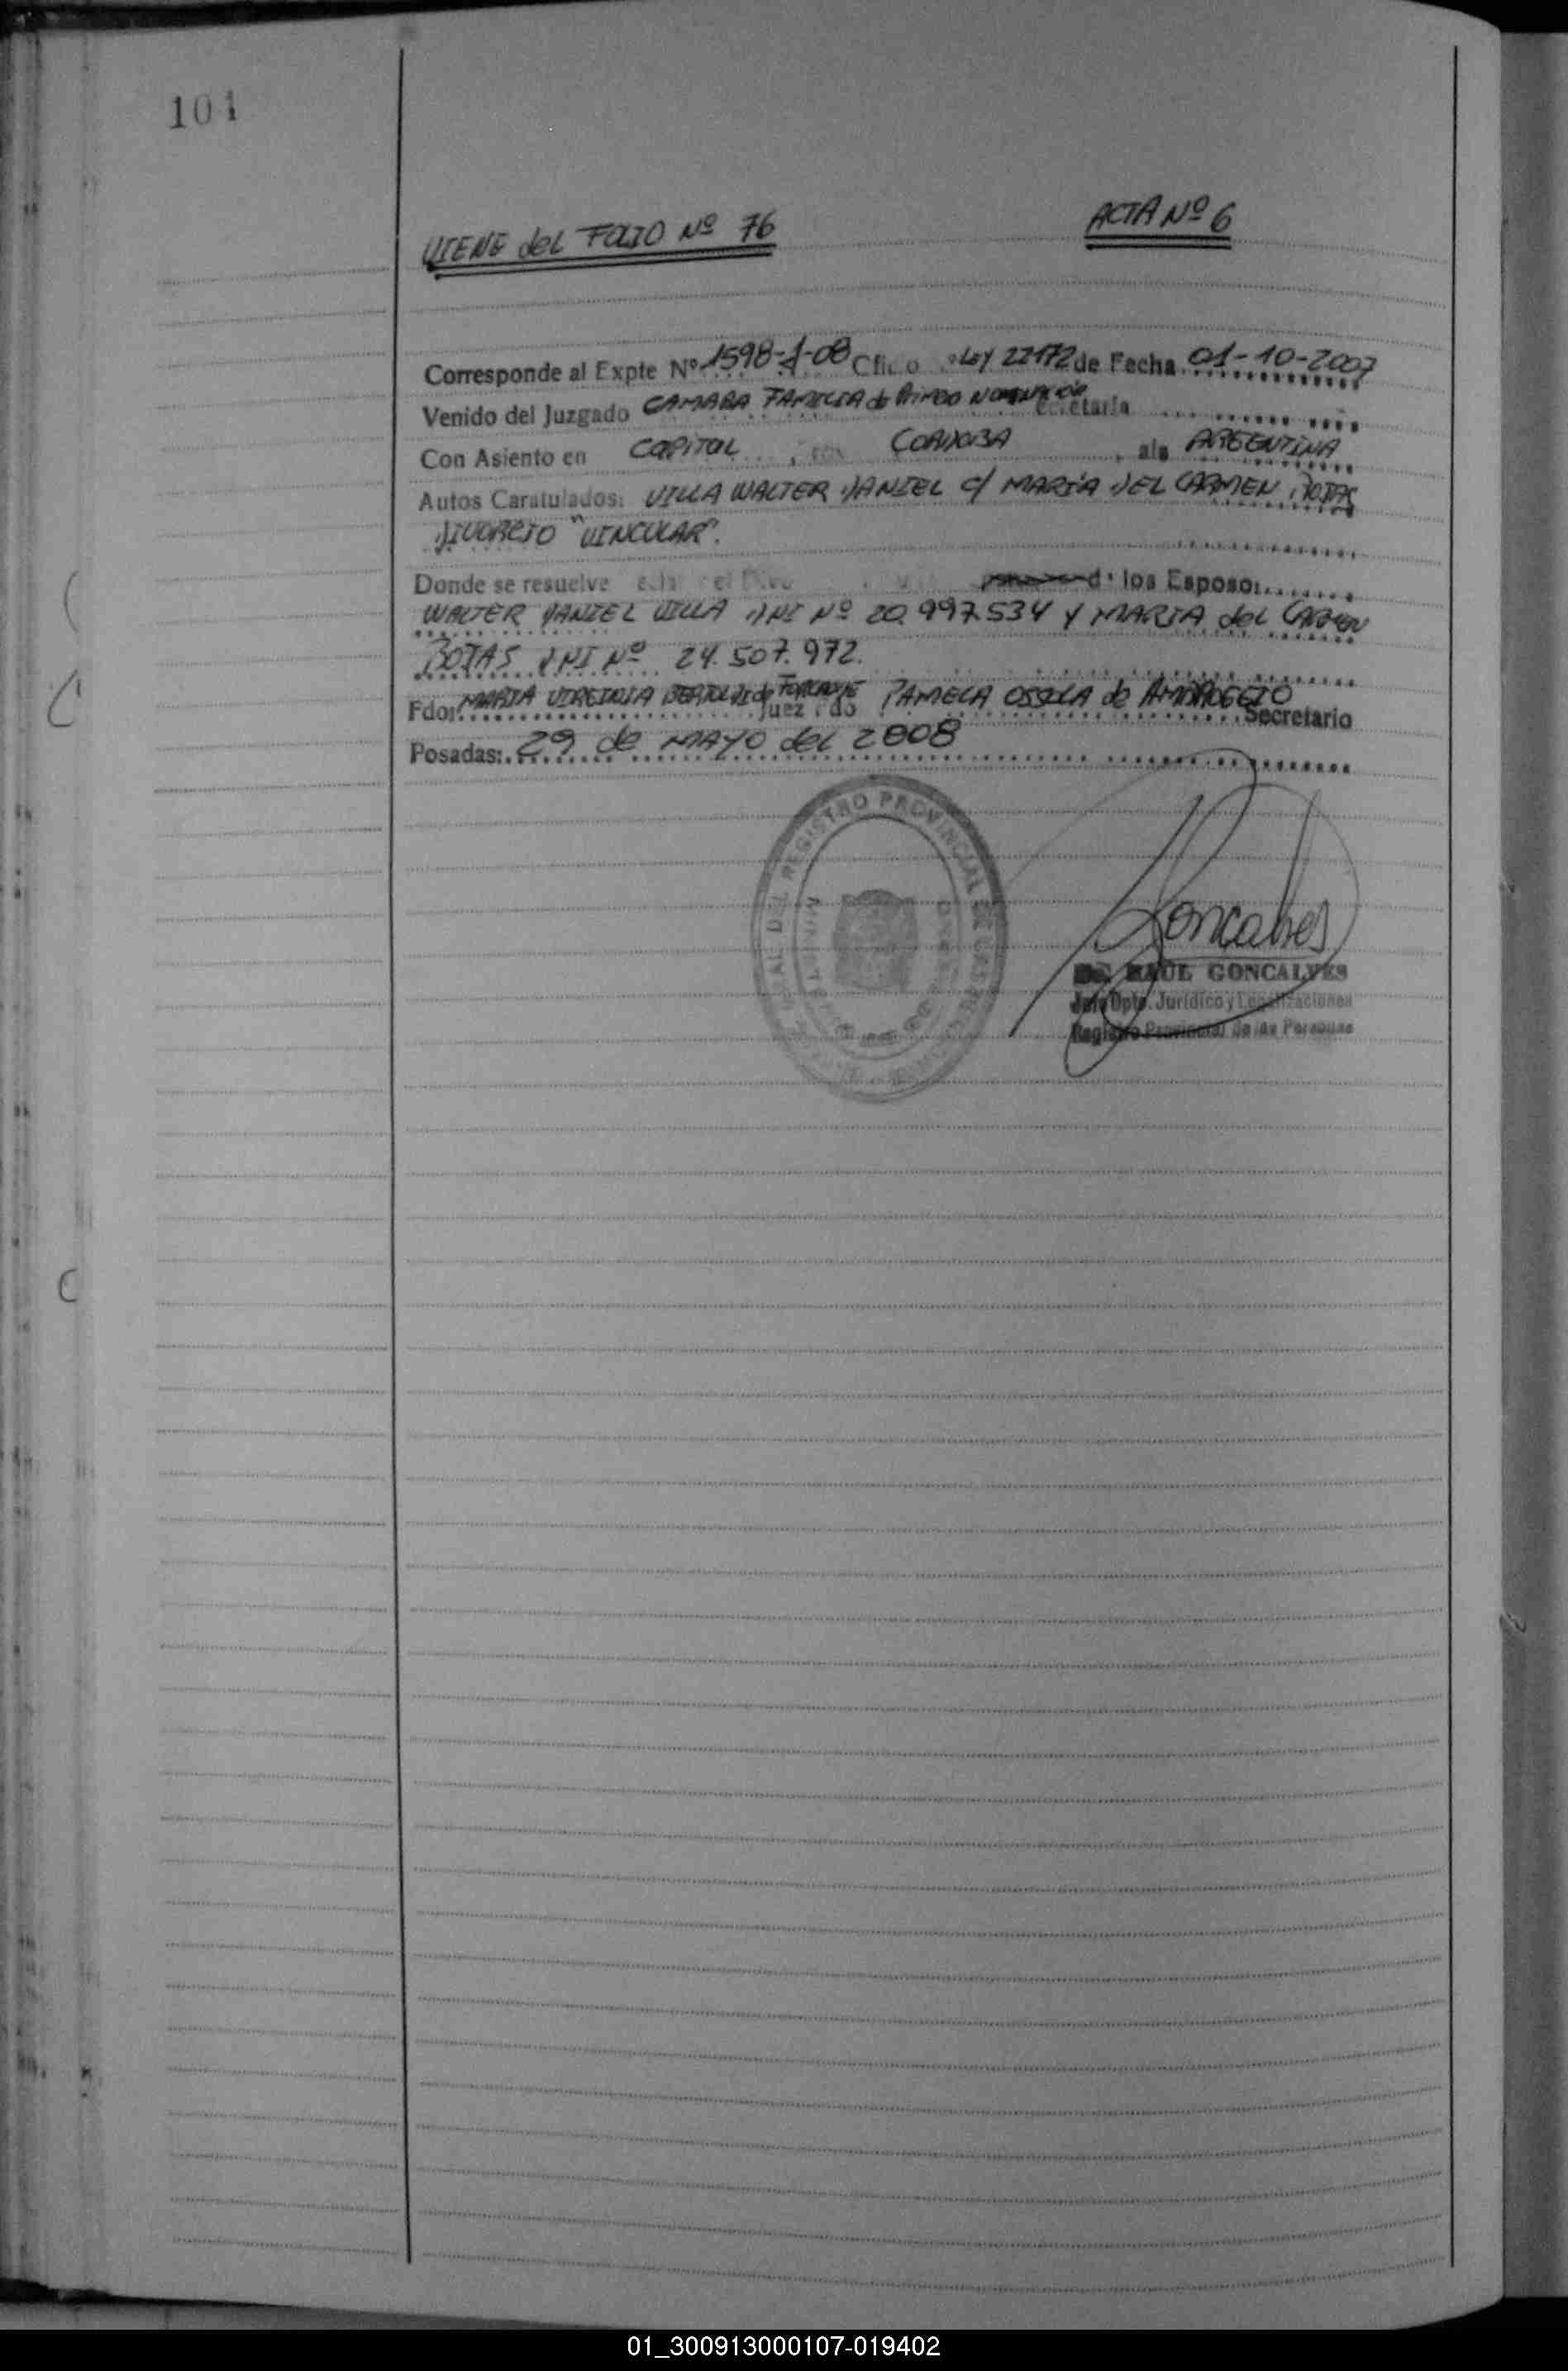 101
VIENE del FOLIO Nº 76
ACTA Nº 6
Corresponde al Expte Nº 1598-1-08 Ofic o Ley 22172 de Fecha 01-10-2007
Venido del Juzgado CAMARA FAMILIA de Primera NOMINACIÓN
Con Asiento en CAPITAL CORDOBA ARGENTINA
Autos Caratulados: VILLA WALTER DANIEL c/ MARÍA DEL CARMEN ROJAS
DIVORCIO "VINCULAR".
Donde se resuelve los Esposos
WALTER DANIEL VILLA DNI Nº 20.997.534 Y MARIA del CARMEN
ROJAS DNI Nº 24.507.972.
Fdo: MARIA VIRGINIA BERTOLDI de Juez Fdo PAMELA OSSOLA de AMBROGGIO Secretario
Posadas: 29 de MAYO del 2008
DEL REGISTRO PROVINCIAL DE
Goncalves
RAUL GONCALVES
Jefe Dpto. Jurídico y Legalizaciones
Registro Provincial de las Personas
01_300913000107-019402